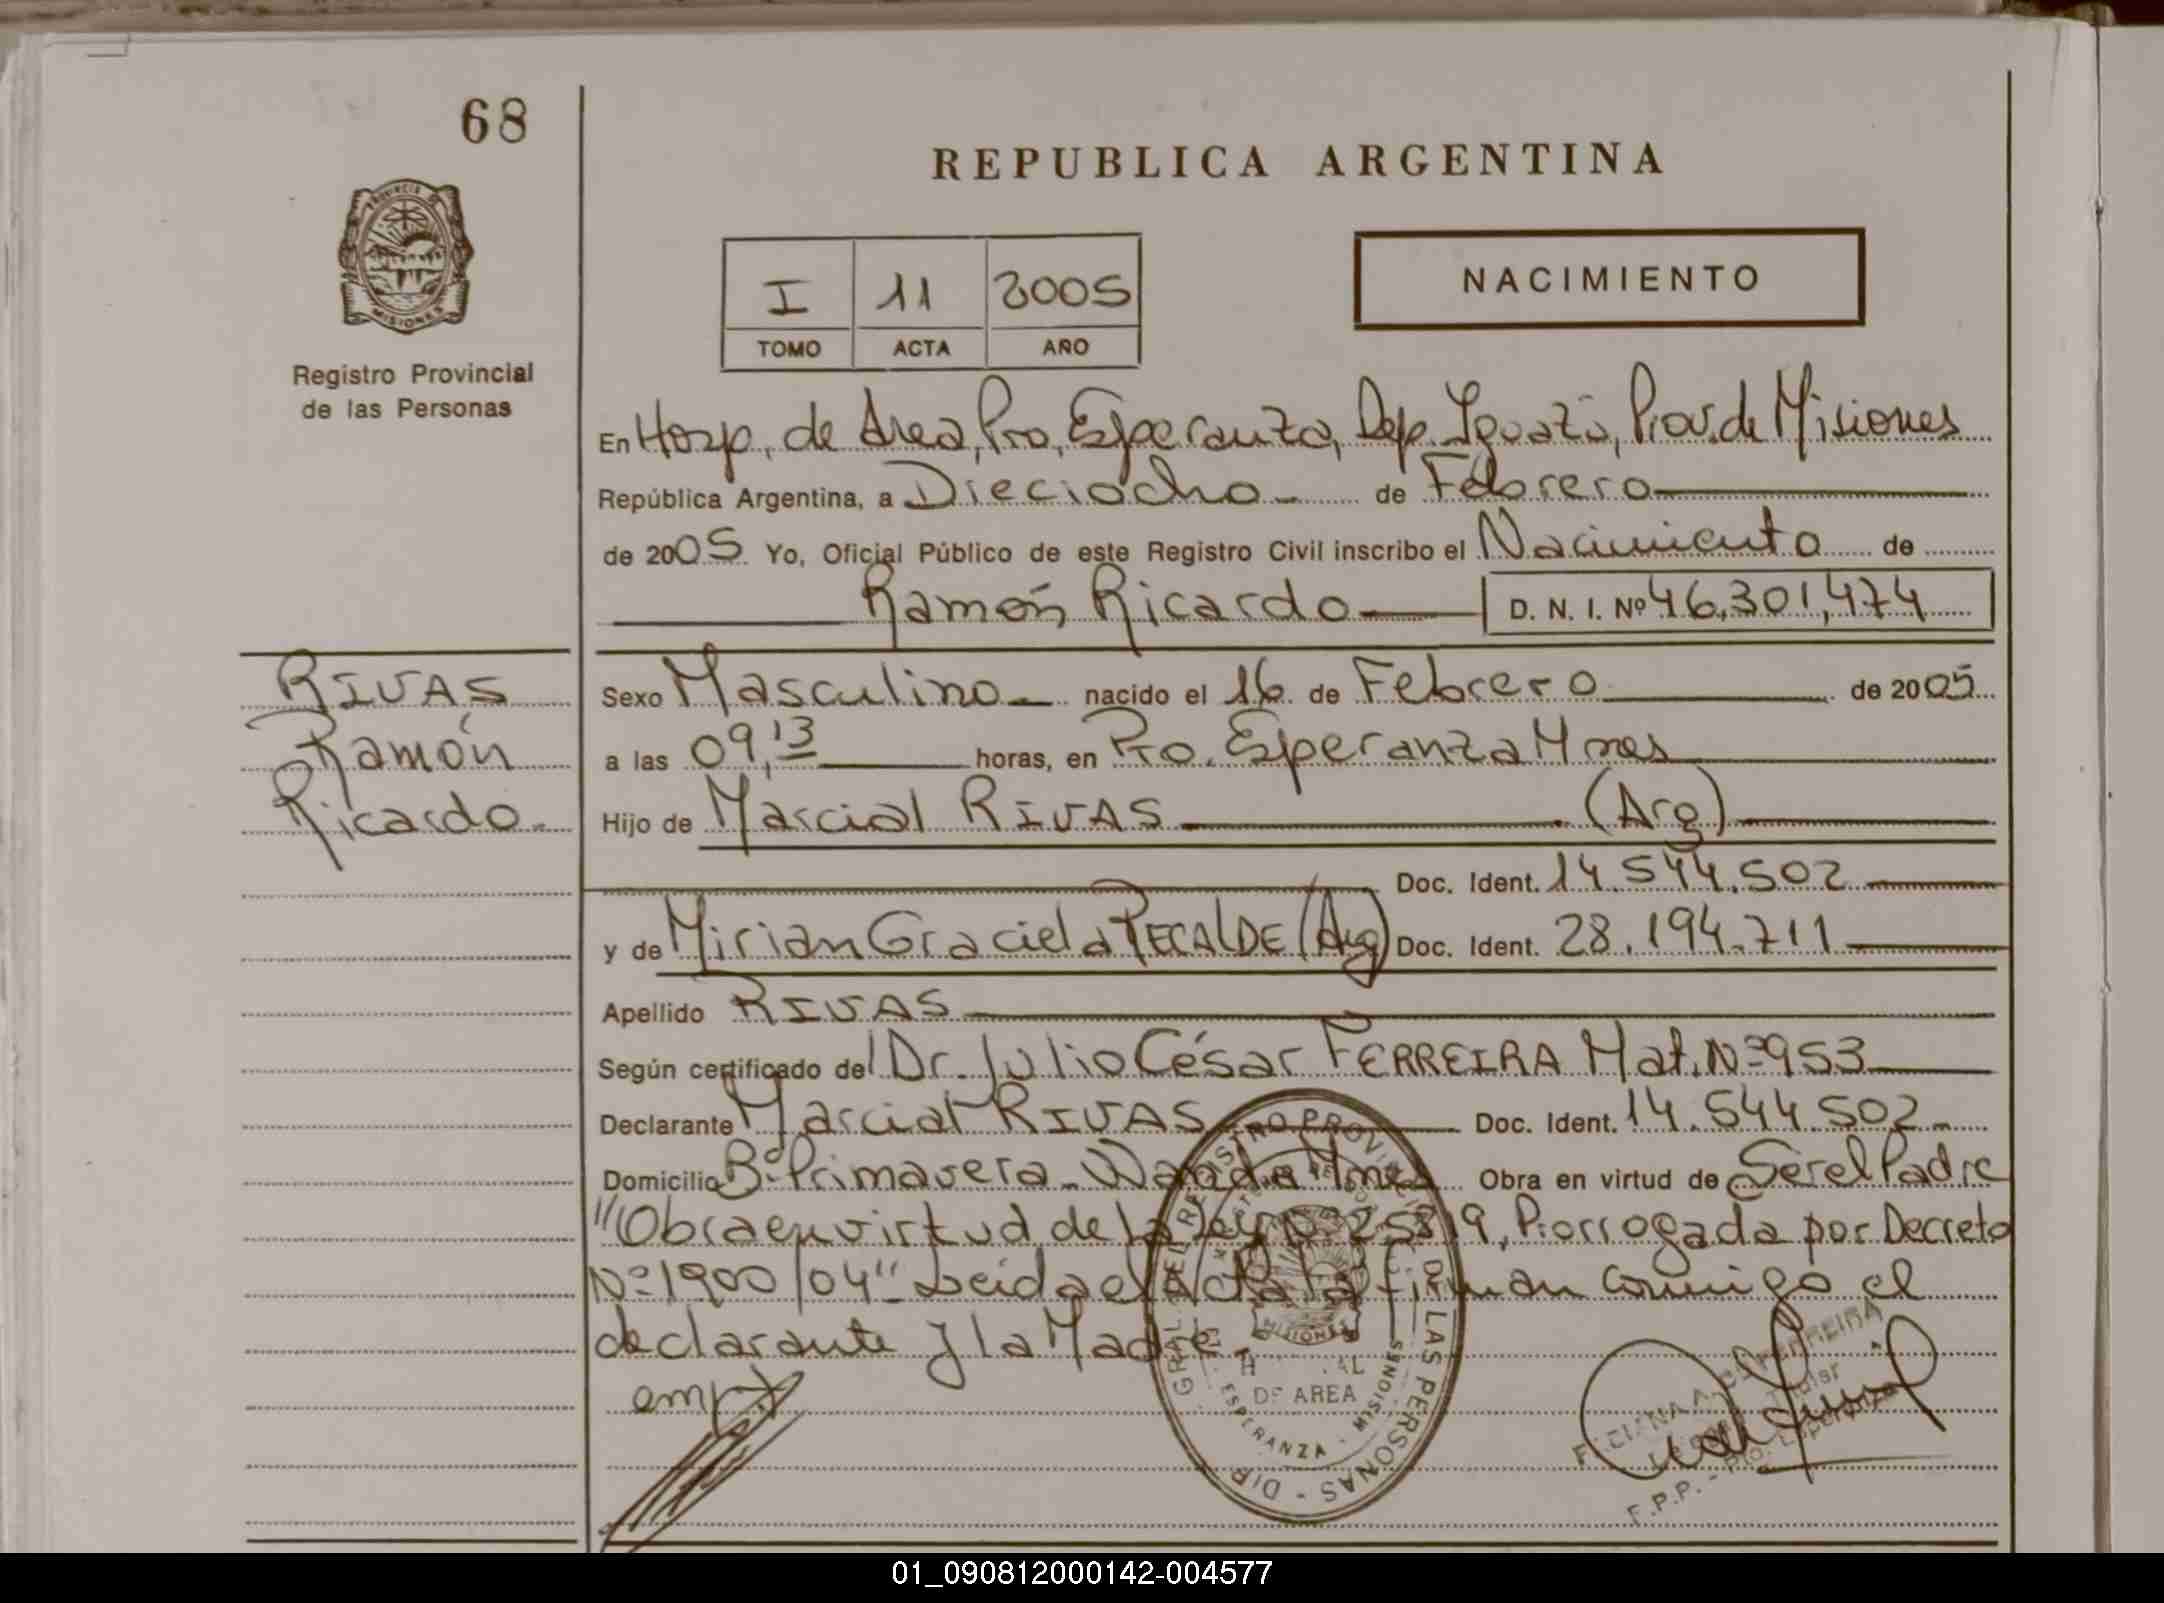 68
REPUBLICA ARGENTINA
NACIMIENTO
I 11 2005
TOMO ACTA AÑO
PROVINCIA DE
MISIONES
Registro Provincial
de las Personas
En Hosp. de Area, Pto. Esperanza, Dep. Iguazú, Prov. de Misiones
República Argentina, a Dieciocho de Febrero
de 2005 Yo, Oficial Público de este Registro Civil inscribo el Nacimiento de
Ramón Ricardo D. N. I. Nº 46.301.474
RIVAS
Ramón
Ricardo
Sexo Masculino nacido el 16 de Febrero de 2005
a las 09,13 horas, en Pto. Esperanza Mnes
Hijo de Marcial RIVAS (Arg)
Doc. Ident. 14.544.502
y de Mirian Graciela RECALDE (Arg) Doc. Ident. 28.194.711
Apellido RIVAS
Según certificado del Dr. Julio César FERREIRA Mat. Nº 953
Declarante Marcial RIVAS Doc. Ident. 14.544.502
Domicilio Bº Primavera - Wanda Mnes Obra en virtud de Ser el Padre
"Obra en virtud de la Ley Nº 25819, Prorrogada por Decreto
Nº 1900/04" Leída el Acta la firman conmigo el
declarante y la Madre.
DIR. GRAL. DEL REGISTRO PROVINCIAL DE LAS PERSONAS
MISIONES
DE AREA
ESPERANZA - MISIONES
FERREIRA
Titular
F.P.P. - Pto. Esperanza
01_090812000142-004577